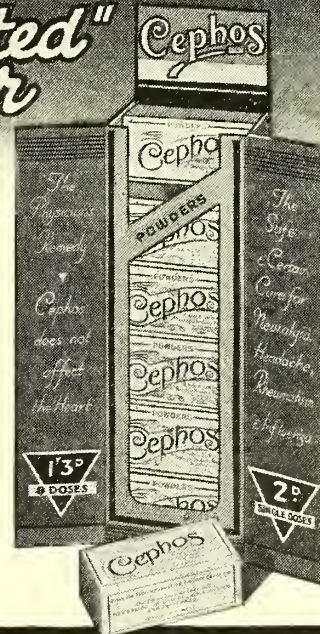 ted"
r
Cephos
The
Physician's
Remedy
Cephos
does not
affect
the Heart
1'3D
8 DOSES
POWDERS
Cepho
POWDERS
Cephos
POWDERS
Cephos
POWDERS
Cephos
POWDERS
Cephos
The
Safe
& Certain
Cure for
Neuralgia
Headache,
Rheumatism
Influenza
2D.
SINGLE DOSES
Cephos